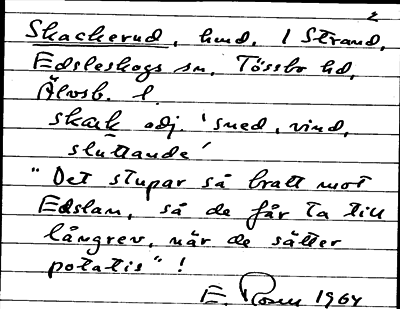 2
Skackerud, hmd. i Strand,
Edsleskogs sn, Tössbo hd,
Älvsb. l.
skack adj. 'sned, vind,
sluttande'
"Det stupar så bratt mot
Edslan, så de får ta till
långrev, när de sätter
potatis"!
E. 1964